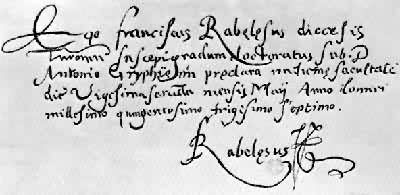 Ego franciscus Rabelęsus diocesis
Turonen. suscepi gradum doctoratus sub D.
Antonio Gryphio in preclara medicine facultate
die vigesima secunda mensis Maij Anno domini
millesimo quingentesimo trigesimo septimo.
Rabelęsus